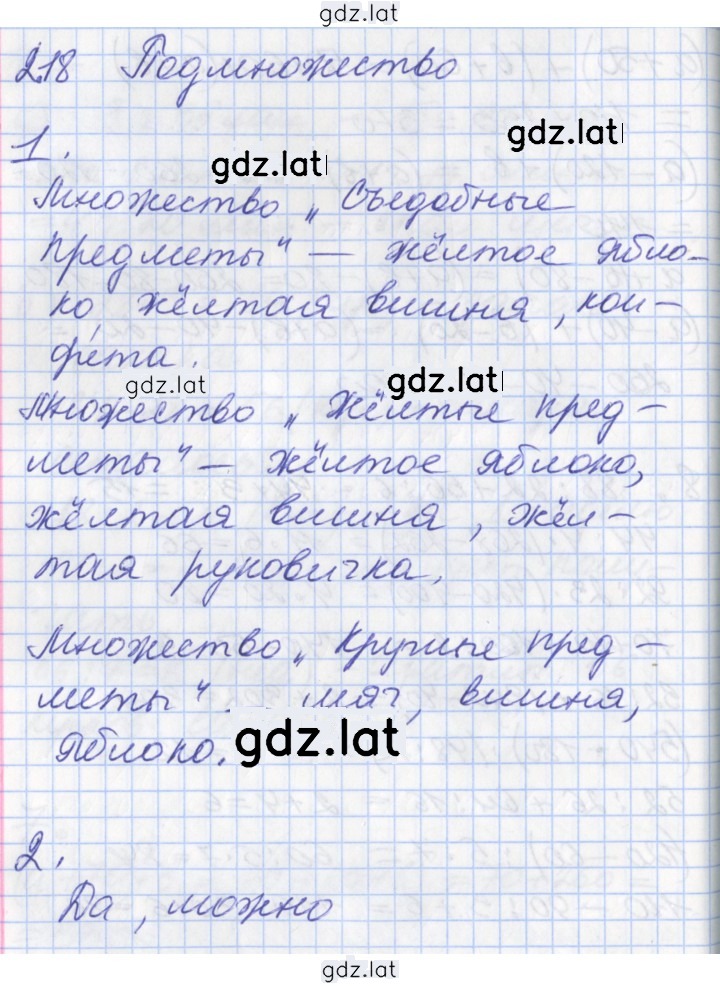 gdz.lat
2.18 Подмножество
1.
gdz.lat
gdz.lat
Множество „Съедобные
предметы“ — жёлтое ябло-
ко жёлтая вишня, кон-
фета.
gdz.lat
gdz.lat
Множество „Жёлтые пред-
меты“ — жёлтое яблоко,
жёлтая вишня, жёл-
тая руковичка.
Множество „Круглые пред-
меты“. мяч, вишня,
яблоко.
gdz.lat
2.
Да, можно
gdz.lat